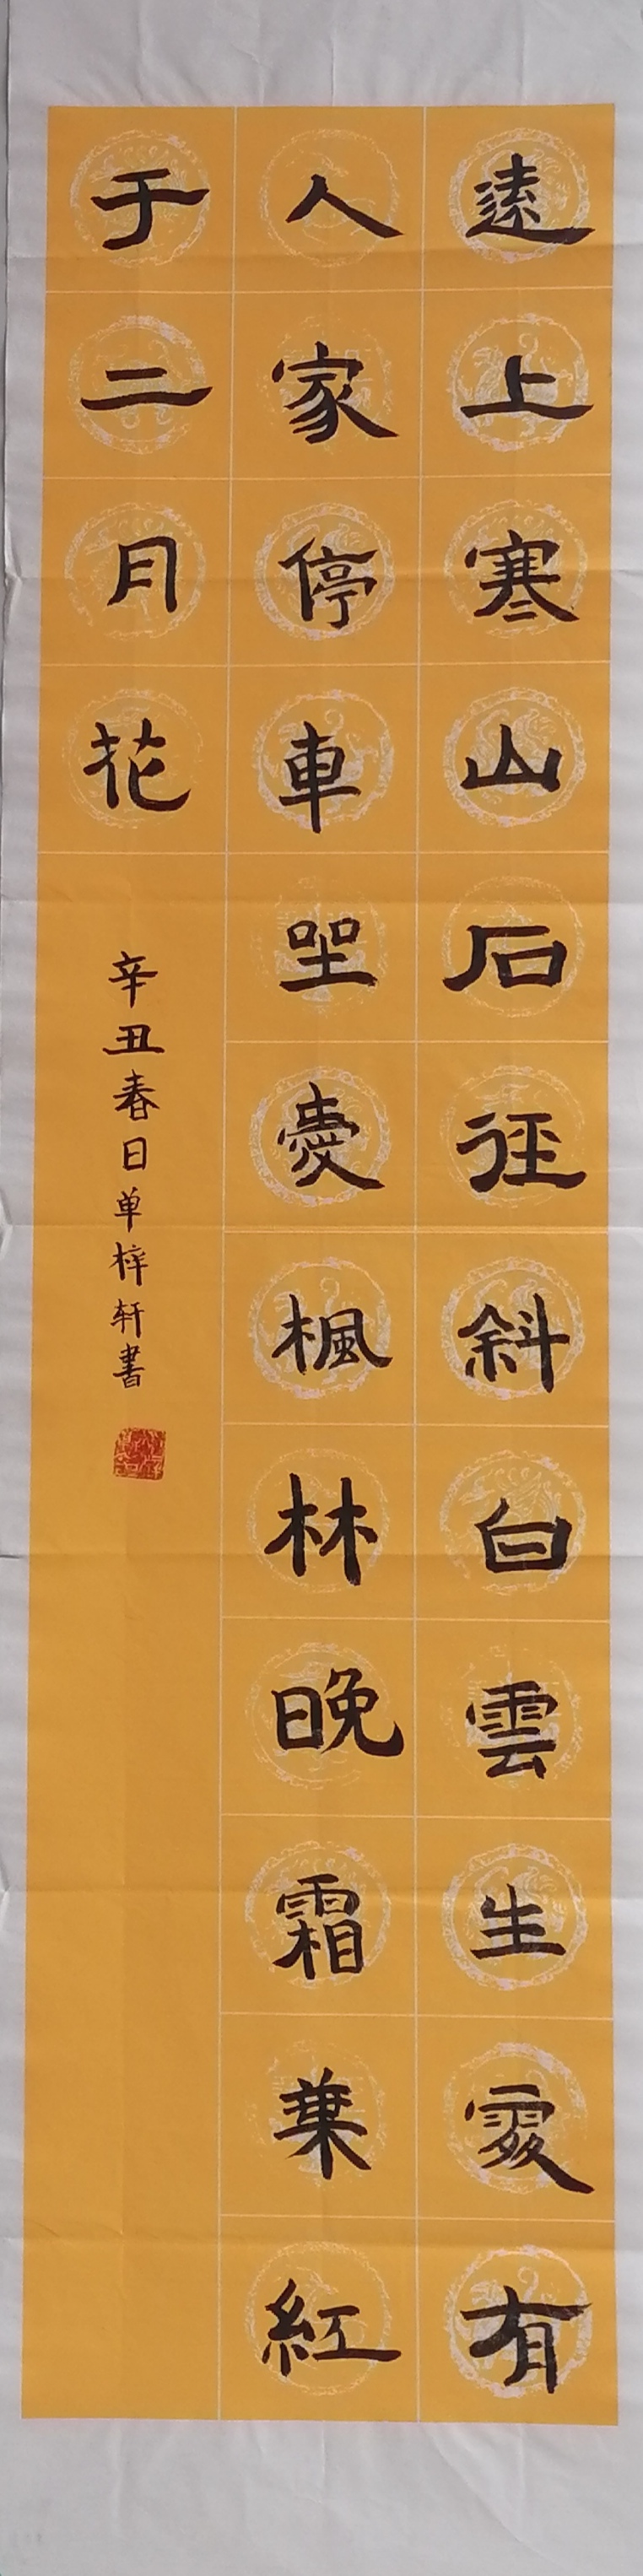 遠上寒山石徑斜白雲生處有
人家停車坐愛楓林晚霜葉紅
于二月花
辛丑春日单梓轩書